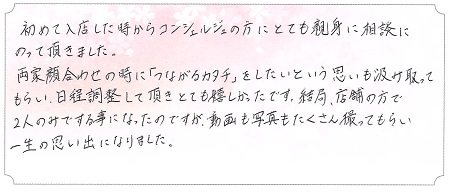 初めて入店した時からコンシェルジュの方にとても親身に相談に
のって頂きました。
両家顔合わせの時に「つながるカタチ」をしたいという思いも汲み取って
もらい、日程調整して頂きとても嬉しかったです。結局、店舗の方で
2人のみでする事になったのですが、動画も写真もたくさん撮ってもらい
一生の思い出になりました。